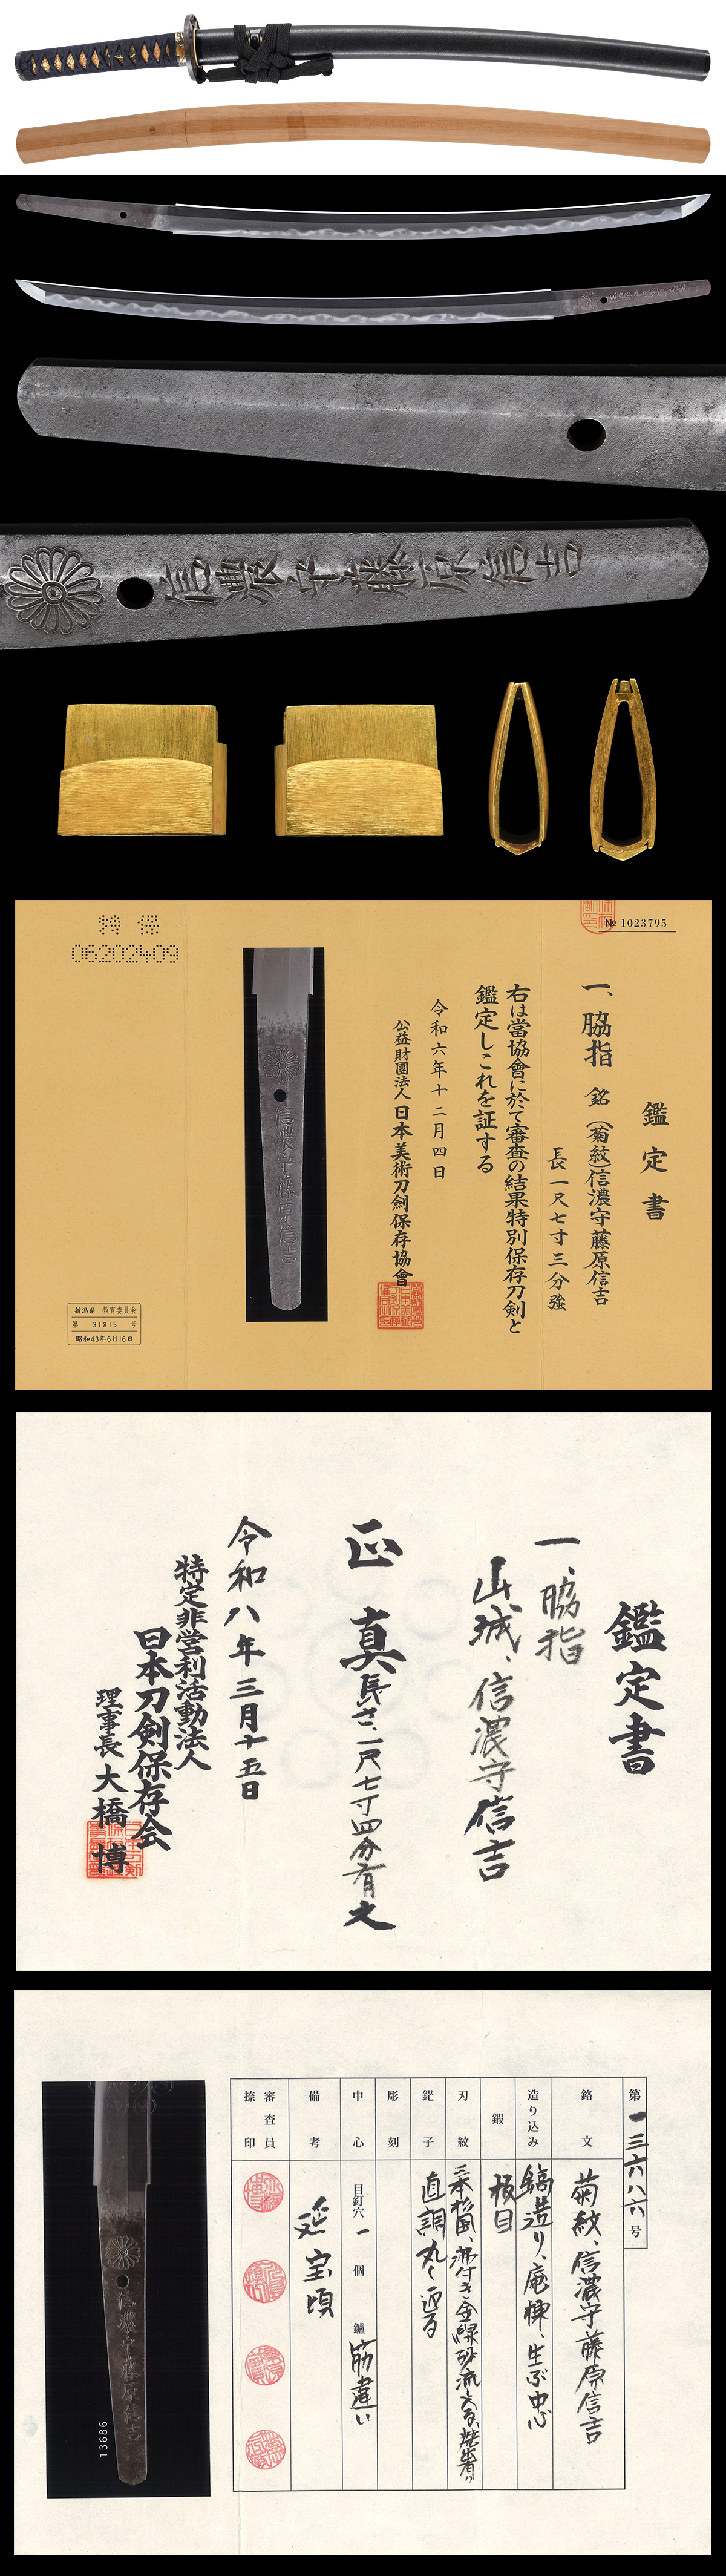 信濃守藤原信吉
特 保
06202409
№ 1023795
鑑定書
一、脇指 銘(菊紋)信濃守藤原信吉
長一尺七寸三分強
右は當協會に於て審査の結果特別保存刀剣と
鑑定しこれを証する
令和六年十二月四日
公益財團法人日本美術刀剣保存協會
信濃守藤原信吉
新潟県 教育委員会
第 31815 号
昭和43年6月16日
鑑定書
一、脇指
山城、信濃守信吉
正真 長さ、一尺七寸四分有之
令和八年三月十五日
特定非営利活動法人
日本刀剣保存会
理事長 大橋 博
第一三六八六号
銘文 菊紋、信濃守藤原信吉
造り込み 鎬造り、庵棟、生ぶ中心
鍛 板目
刃紋 沸付き金線砂流入る、焼出
鋩子 直調丸く返る
彫刻
中心 目釘穴 一 個 鑢 筋違い
備考 延宝頃
審査員 捺印
信濃守藤原信吉
13686